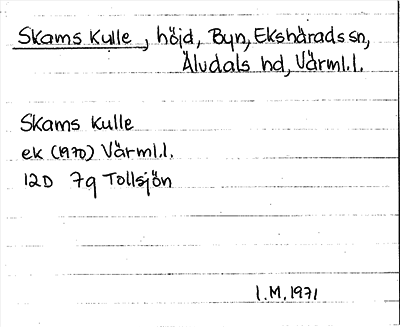 Skams Kulle, höjd, Byn, Ekshärads sn,
Älvdals hd, Värml.l.
Skams Kulle
ek (1970) Värml.l.
12D 7g Tollsjön
I.M. 1971